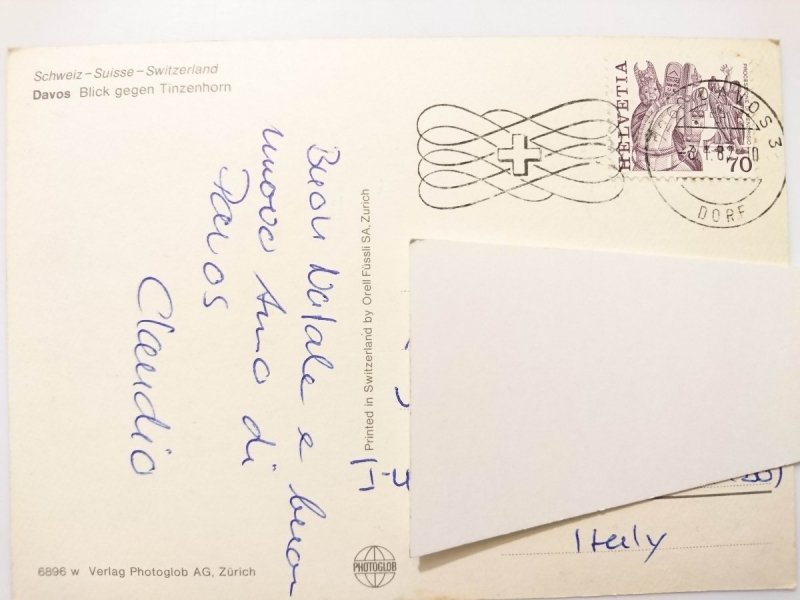 Schweiz – Suisse – Switzerland
Davos Blick gegen Tinzenhorn
Buon Natale e buon
nuovo Anno di
Davos
Claudio
Printed in Switzerland by Orell Füssli SA, Zurich
HELVETIA
70
DAVOS 3
DORF
Italy
6896 w Verlag Photoglob AG, Zürich
PHOTOGLOB